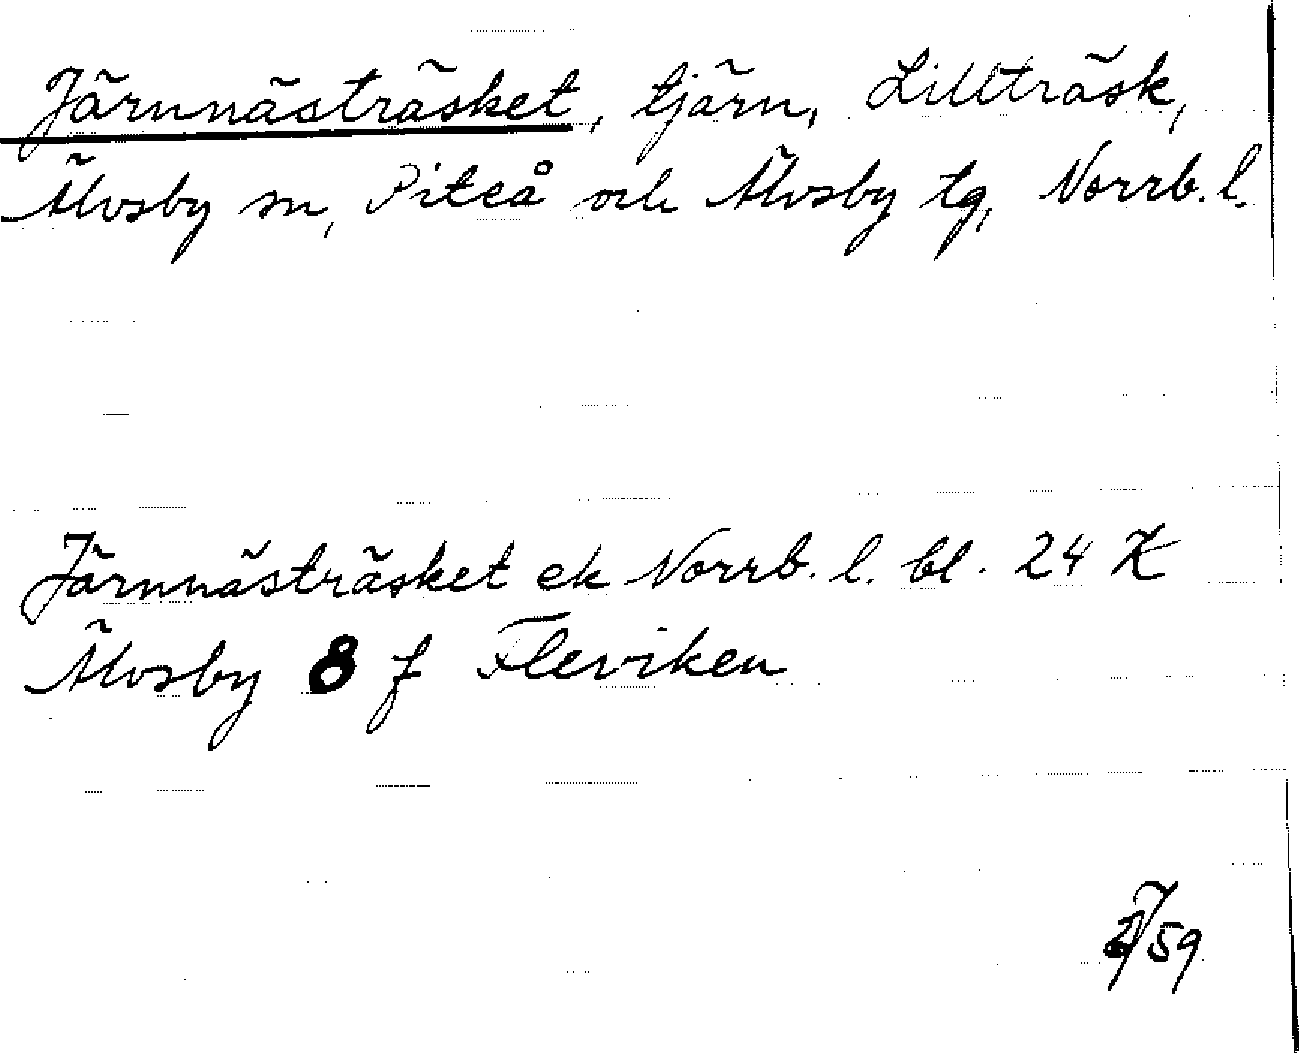 Järnnästräsket, tjärn, Lillträsk,
Älvsby sn, Piteå och Älvsby tg, Norrb. l.
Järnnästräsket ek Norrb. l. bl. 24 K
Älvsby 8 f Fleviken
/59